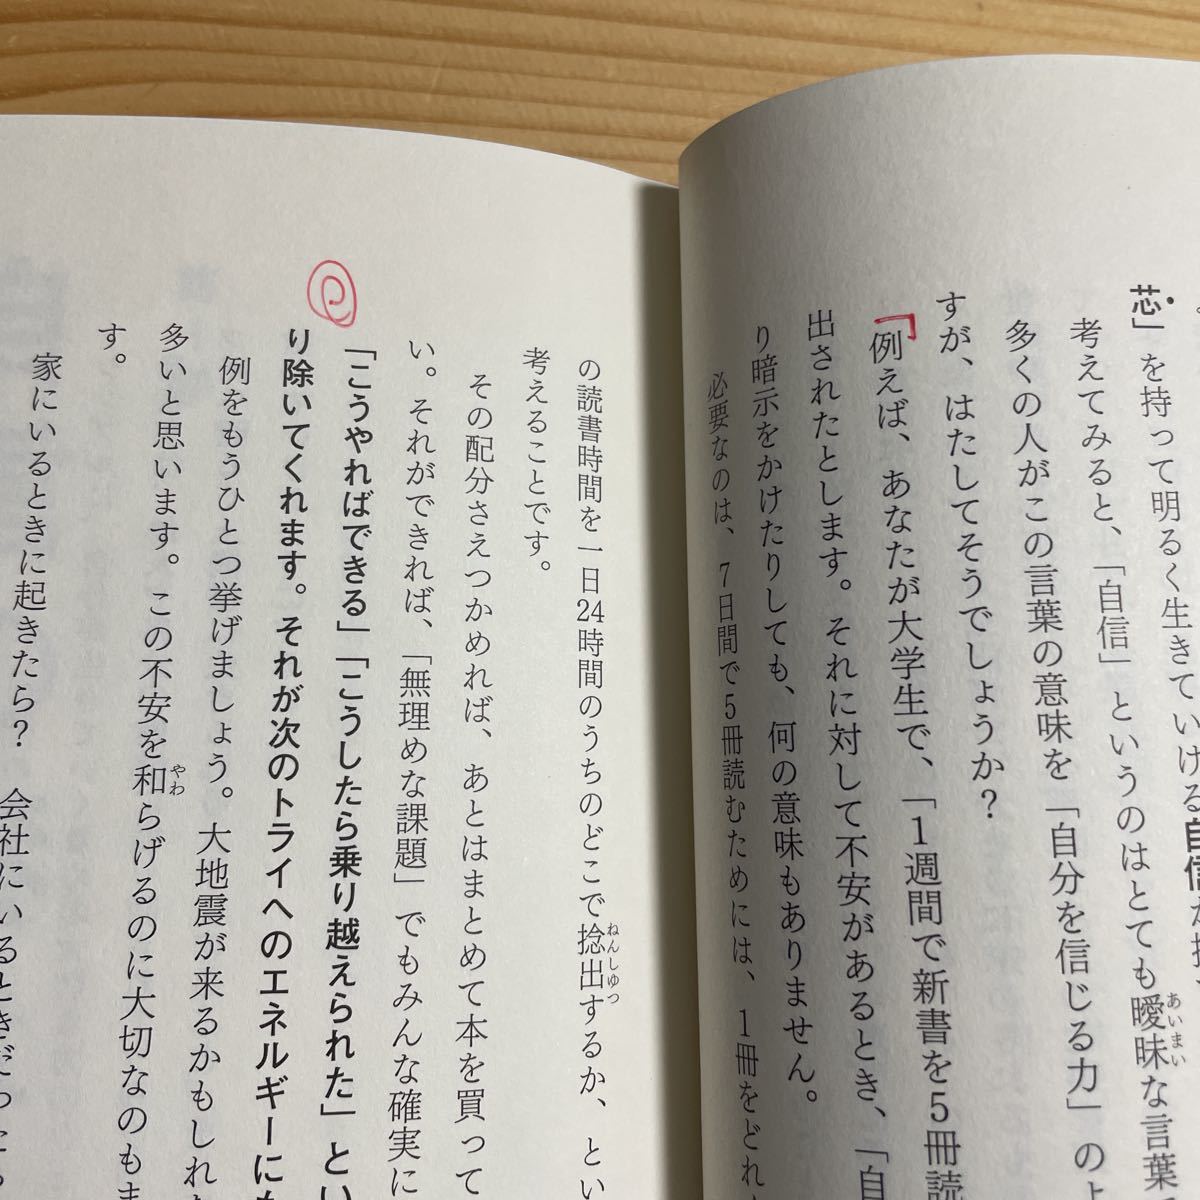 芯」を持って明るく生きていける自信が
考えてみると、「自信」というのはとても曖昧な言葉
あいまい
多くの人がこの言葉の意味を「自分を信じる力」のよ
すが、はたしてそうでしょうか?
「例えば、あなたが大学生で、「1週間で新書を5冊読
出されたとします。それに対して不安があるとき、「自
り暗示をかけたりしても、何の意味もありません。
必要なのは、7日間で5冊読むためには、1冊をどれ
の読書時間を一日24時間のうちのどこで捻出するか、とい
ねんしゆつ
考えることです。
その配分さえつかめれば、あとはまとめて本を買って
い。それができれば、「無理めな課題」でもみんな確実に
「こうやればできる」「こうしたら乗り越えられた」とい
り除いてくれます。それが次のトライへのエネルギーにも
例をもうひとつ挙げましょう。大地震が来るかもしれ
多いと思います。この不安を和らげるのに大切なのもま
やわ
す。
家にいるときに起きたら? 会社にいるときだったら